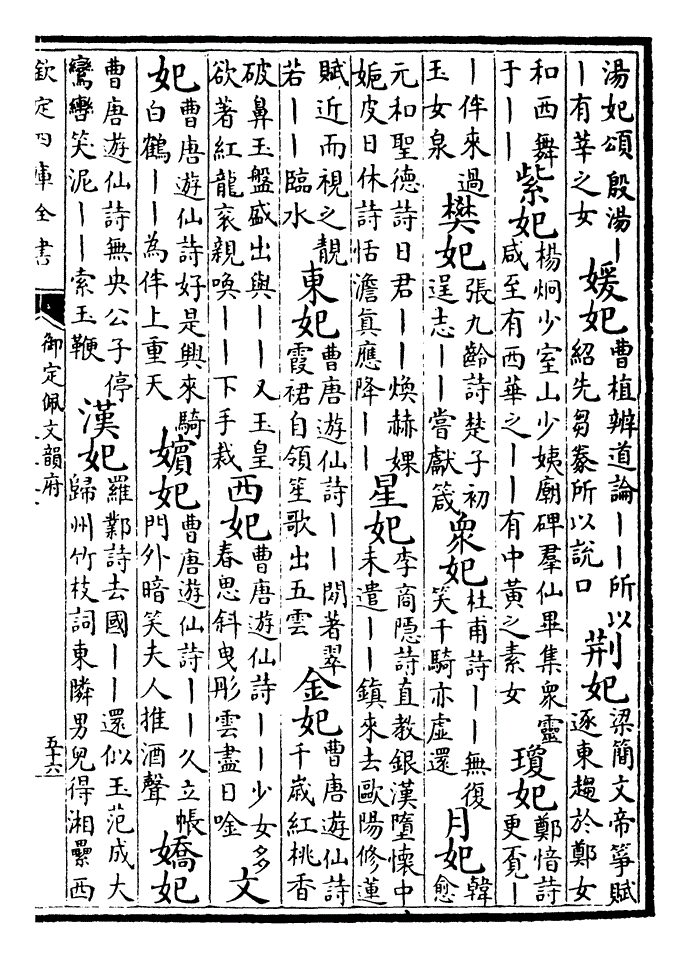 湯妃頌殷湯｜｜有莘之女媛妃曹植辨道論｜｜所以紹先芻豢所以說口荆妃梁簡文帝箏賦逐東趨於鄭女
和西舞于｜｜紫妃楊烱少室山少姨廟碑羣仙畢集衆靈咸至有西華之｜｜有中黃之素女瓊妃鄭愔詩更覓｜
｜伴來過玉女泉樊妃張九齡詩楚子初逞志｜｜嘗獻箴衆妃杜甫詩｜｜無復笑千騎亦虛還月妃韓愈
元和聖德詩日君｜｜煥赫婐㛂皮日休詩恬澹眞應降｜｜星妃李商隱詩直教銀漢墮懷中未遣｜｜鎮來去歐陽修蓮
賦近而視之靚若｜｜臨水東妃曹唐遊仙詩｜｜閒著翠霞裙自領笙歌出五雲金妃曹唐遊仙詩千歲紅桃香
破鼻玉盤盛出與｜｜又玉皇欲著紅龍衮親喚｜｜下手裁西妃曹唐遊仙詩｜｜少女多春思斜曳彤雲盡日唫文
妃曹唐遊仙詩好是興來騎白鶴｜｜為伴上重天嬪妃曹唐遊仙詩｜｜久立帳門外暗笑夫人推酒聲嬌妃
曹唐遊仙詩無央公子停鸞轡笑泥｜｜索玉鞭漢妃羅鄴詩去國｜｜還似玉范成大歸州竹枝詞東隣男兒得湘纍西
欽定四庫全書
御定佩文韻府
五十六